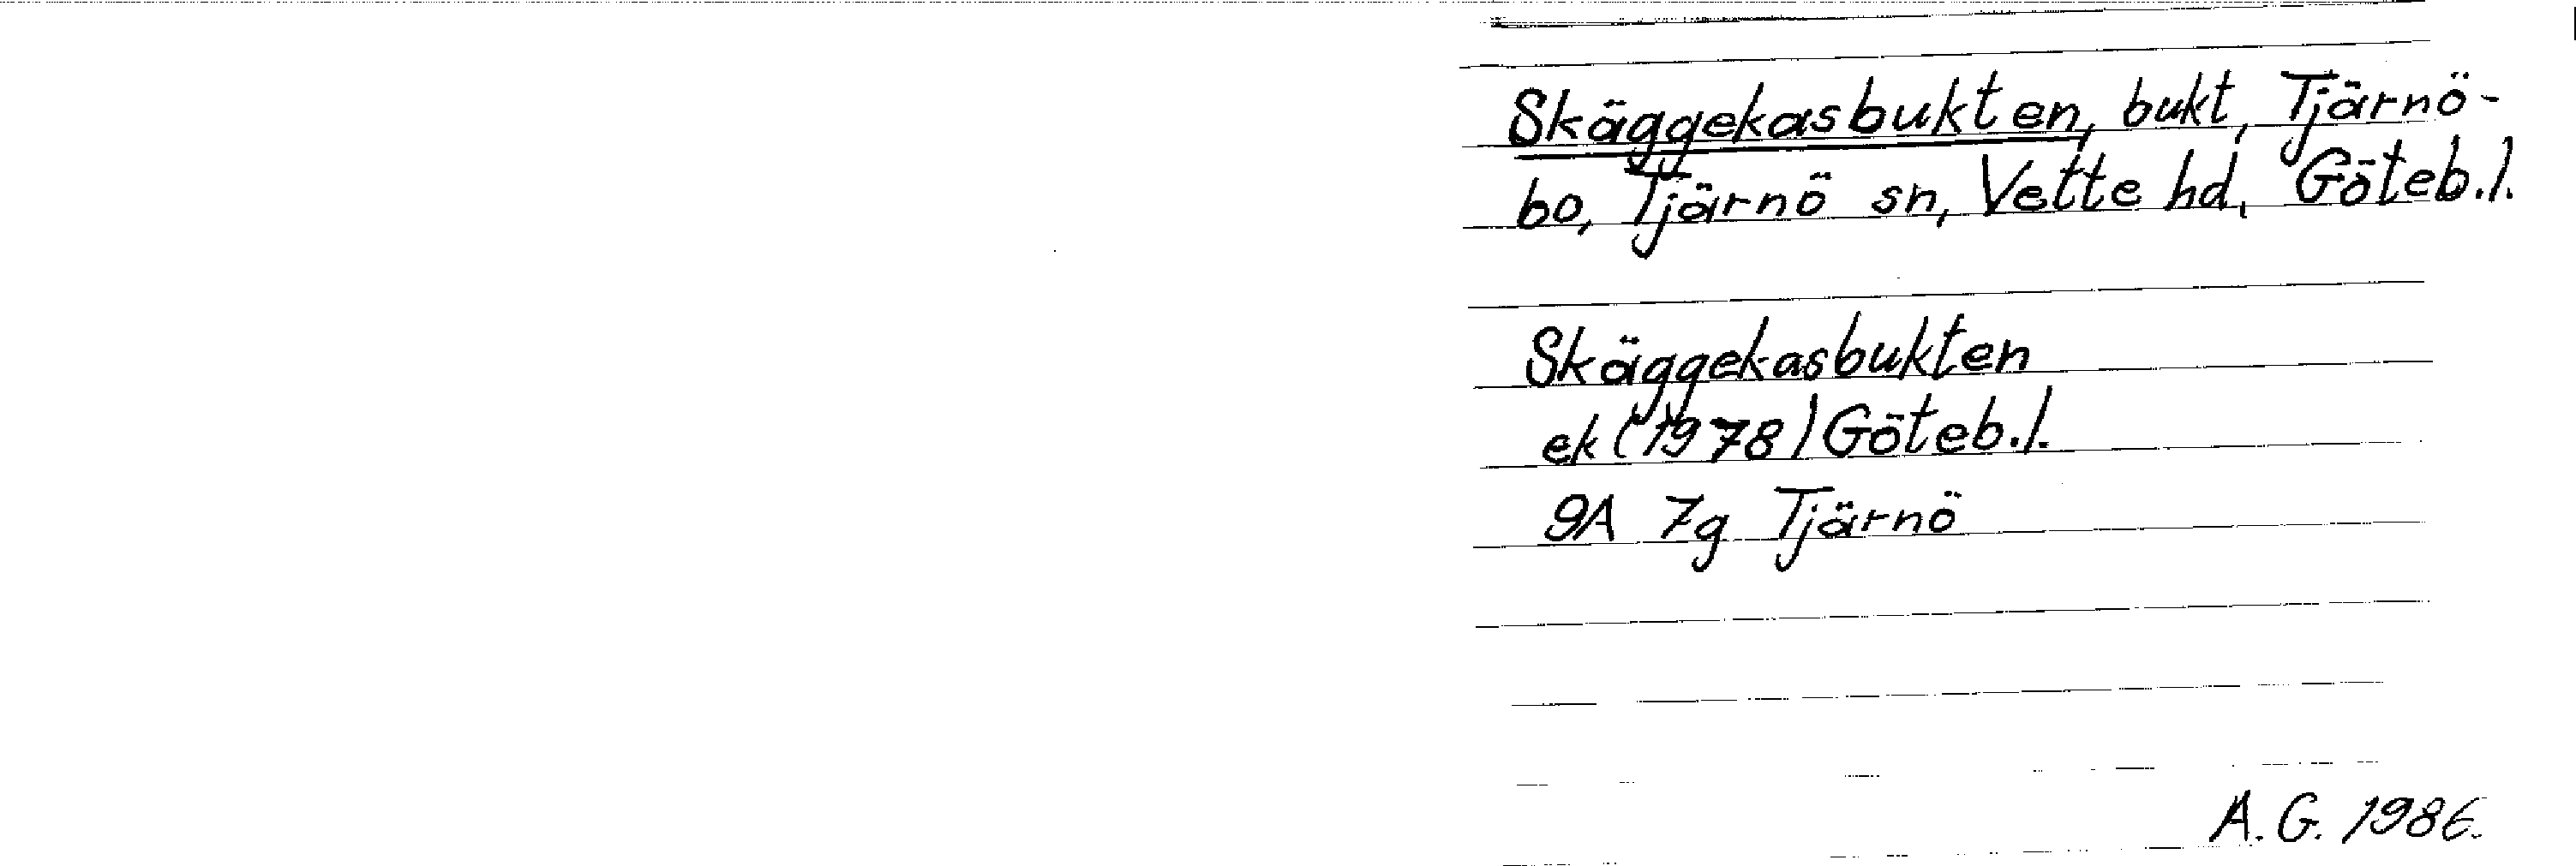 Skäggekasbukten, bukt, Tjärnö-
bo, Tjärnö sn, Vette hd, Göteb.l.
Skäggekasbukten
ek (1978) Göteb.l.
9A 7g Tjärnö
A.G. 1986.